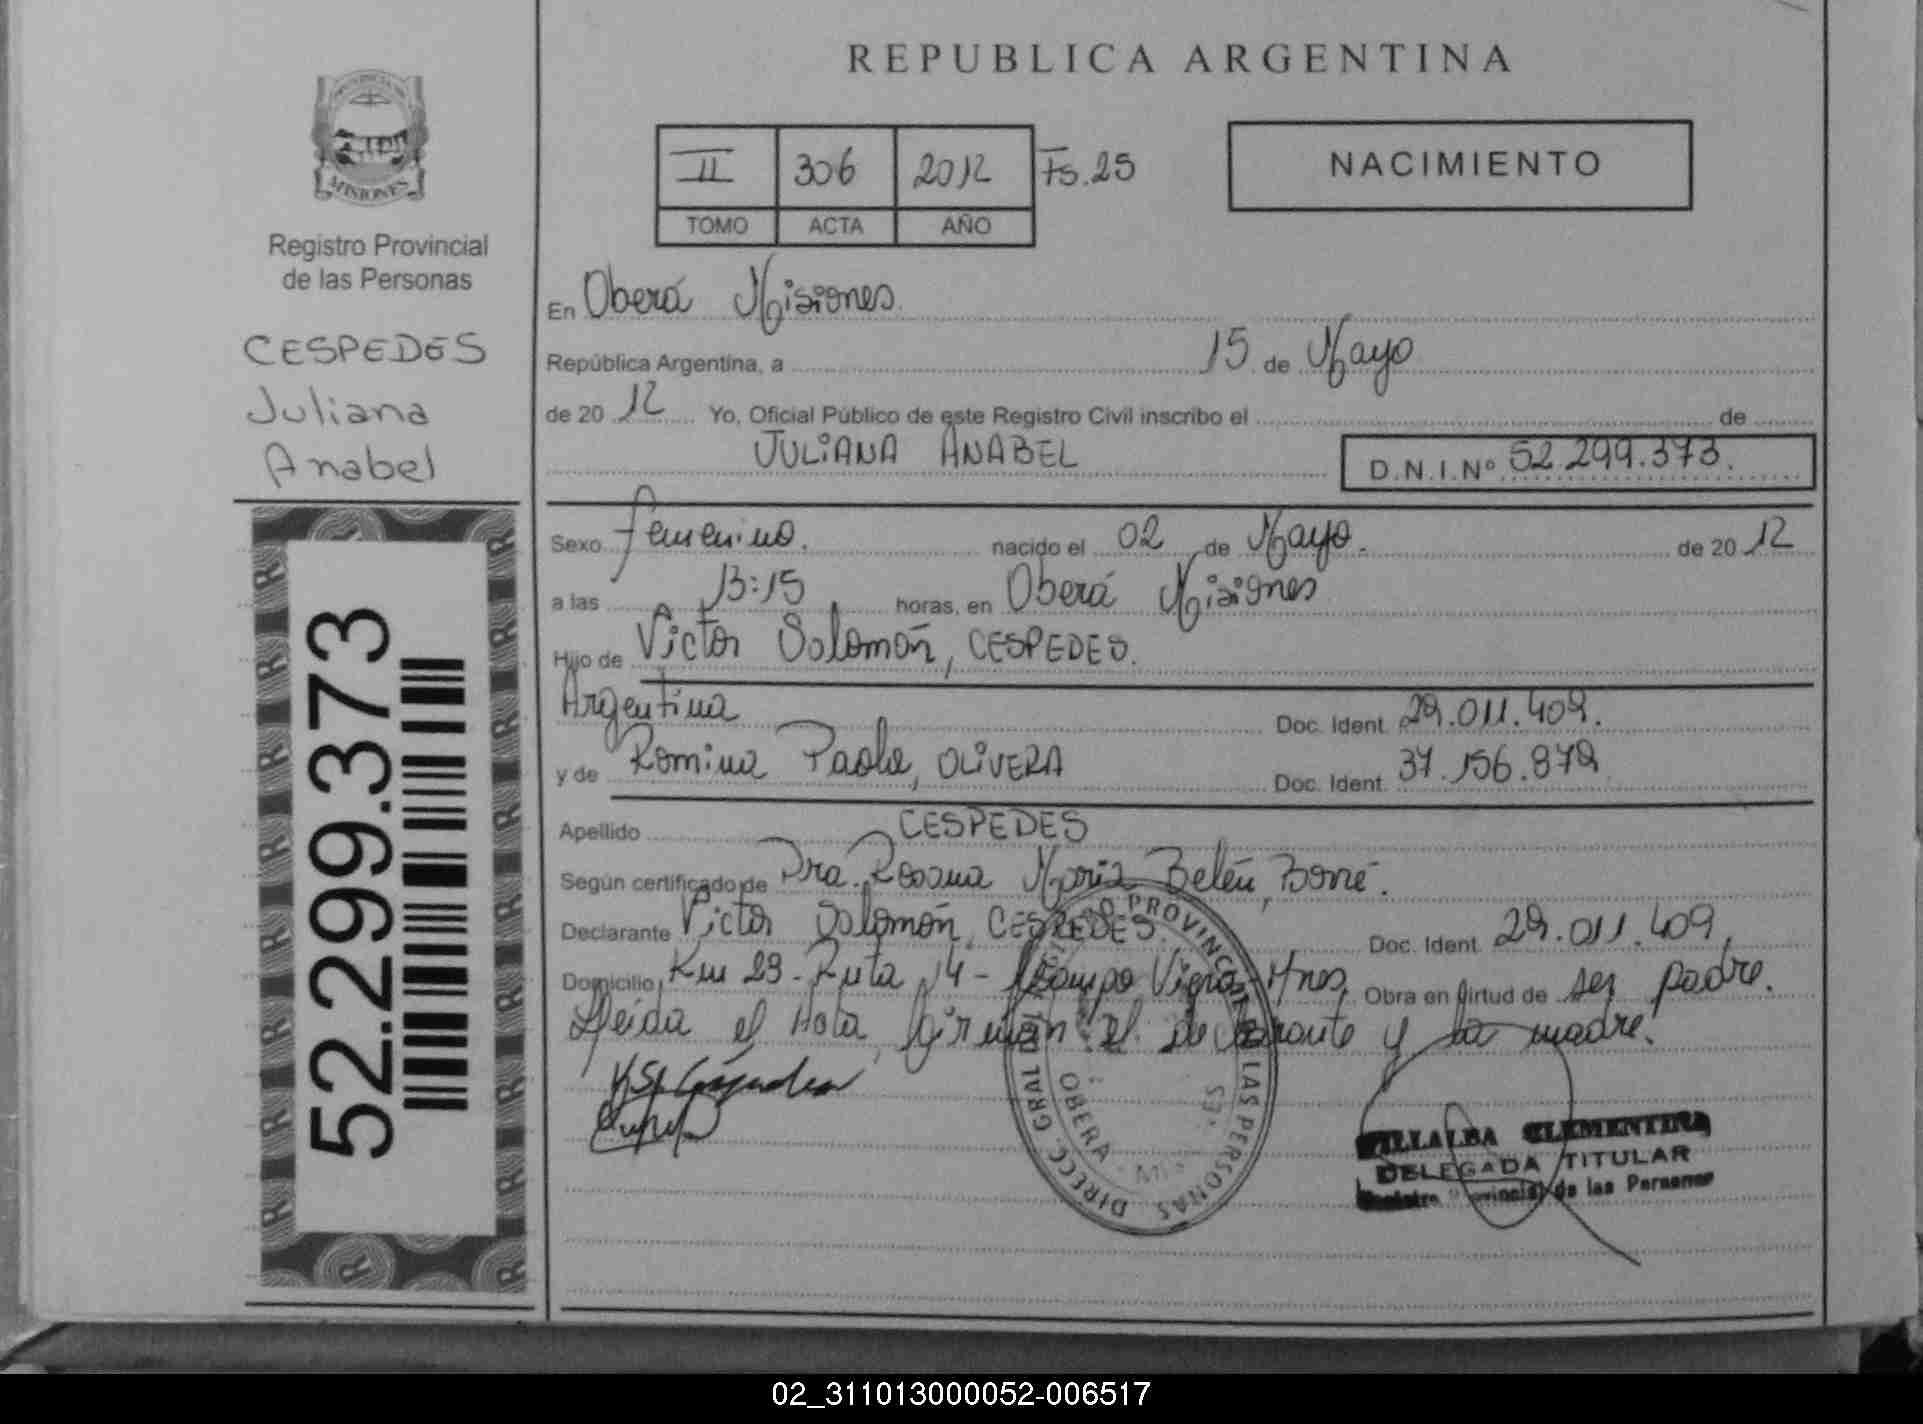 REPUBLICA ARGENTINA
MISIONES
Registro Provincial
de las Personas
CESPEDES
Juliana
Anabel
52.299.373
II 306 2012 Fs. 25
TOMO ACTA AÑO
NACIMIENTO
En Oberá Misiones.
República Argentina, a 15 de Mayo
de 20 12 Yo, Oficial Público de este Registro Civil inscribo el de
JULIANA ANABEL D.N.I.Nº 52.299.373.
Sexo femenino. nacido el 02 de Mayo. de 20 12
a las 13:15 horas, en Oberá Misiones
Hijo de Victor Solomón, CESPEDES.
Argentina Doc. Ident. 29.011.409.
y de Romina Paola, OLIVERA Doc. Ident. 37.156.879
Apellido CESPEDES
Según certificado de Dra. Rosana María Belén, Borré.
Declarante Victor Solomón, CESPEDES. Doc. Ident. 29.011.409,
Domicilio Km 23 - Ruta 14 - Campo Viera - Mnes. Obra en virtud de ser padre.
Leída el Acta, firman el declarante y la madre.
DIRECC. GRAL DEL REGISTRO PROVINCIAL DE LAS PERSONAS
OBERA - MISIONES
VILLALBA CLEMENTINA
DELEGADA TITULAR
Registro Provincial de las Personas
02_311013000052-006517